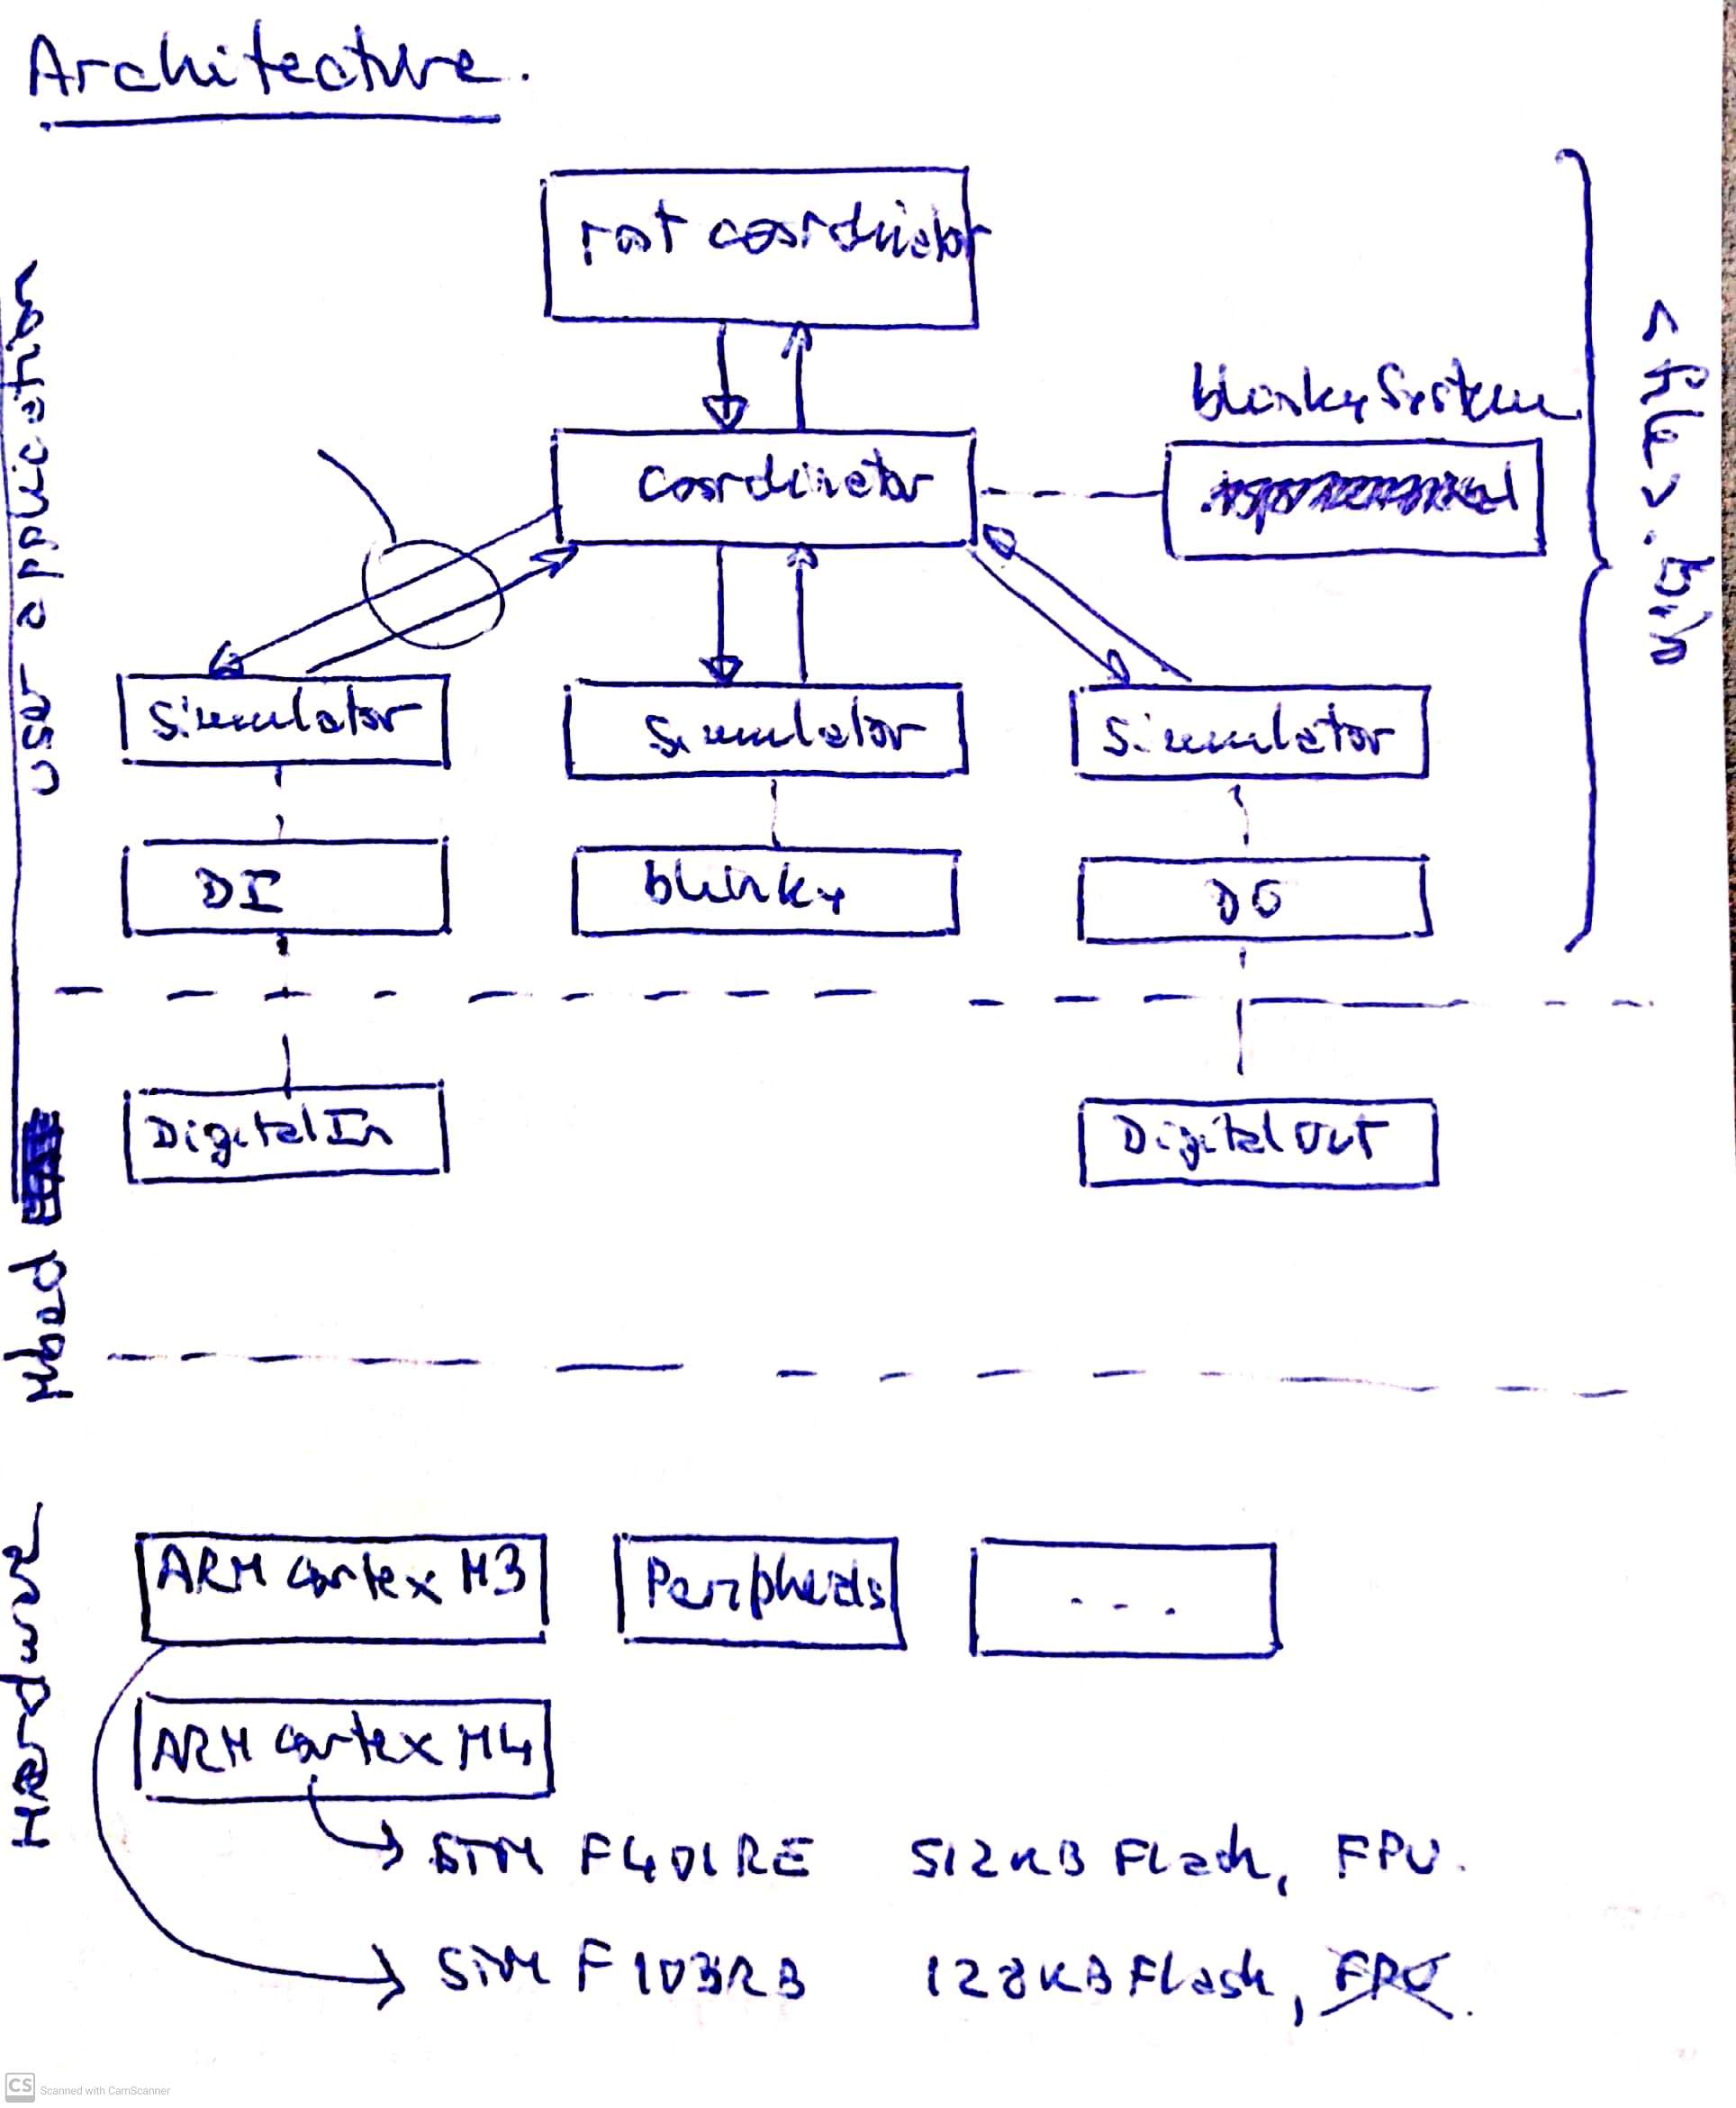 Architecture.
root coordinator
user application
<file>.bin
blinkySystem
coordinator
simulator
simulator
simulator
DI
blinky
DO
DigitalIn
DigitalOut
Mbed
Hardware
ARM Cortex M3
Peripherals
...
ARM Cortex M4
STM F401RE 512KB Flash, FPU.
STM F103RB 128KB Flash, FPU.
CS Scanned with CamScanner